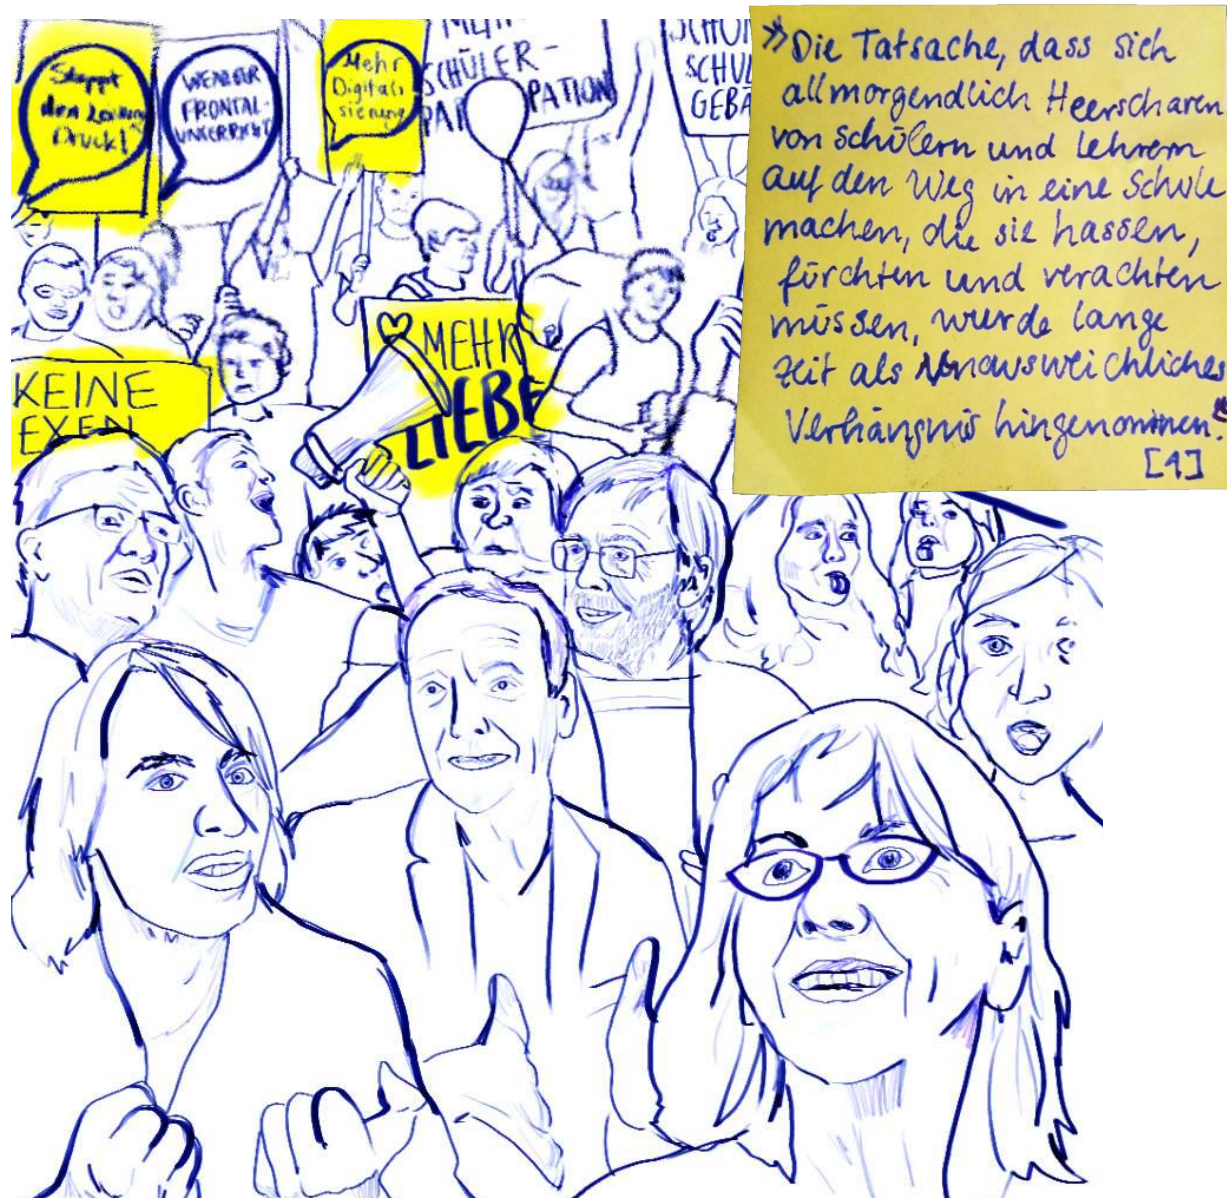 Stoppt
den Leistungs
Druck!
WENIGER
FRONTAL-
UNTERRICHT
Mehr
Digitali
sierung
MEHR
SCHÜLER-
PARTIZIPATION
SCHUL
GEBÄ
KEINE
EXEN
MEHR
LIEBE
"Die Tatsache, dass sich
allmorgendlich Heerscharen
von Schülern und Lehrern
auf den Weg in eine Schule
machen, die sie hassen,
fürchten und verachten
müssen, wurde lange
Zeit als Unausweichliches
Verhängnis hingenommen."
[1]